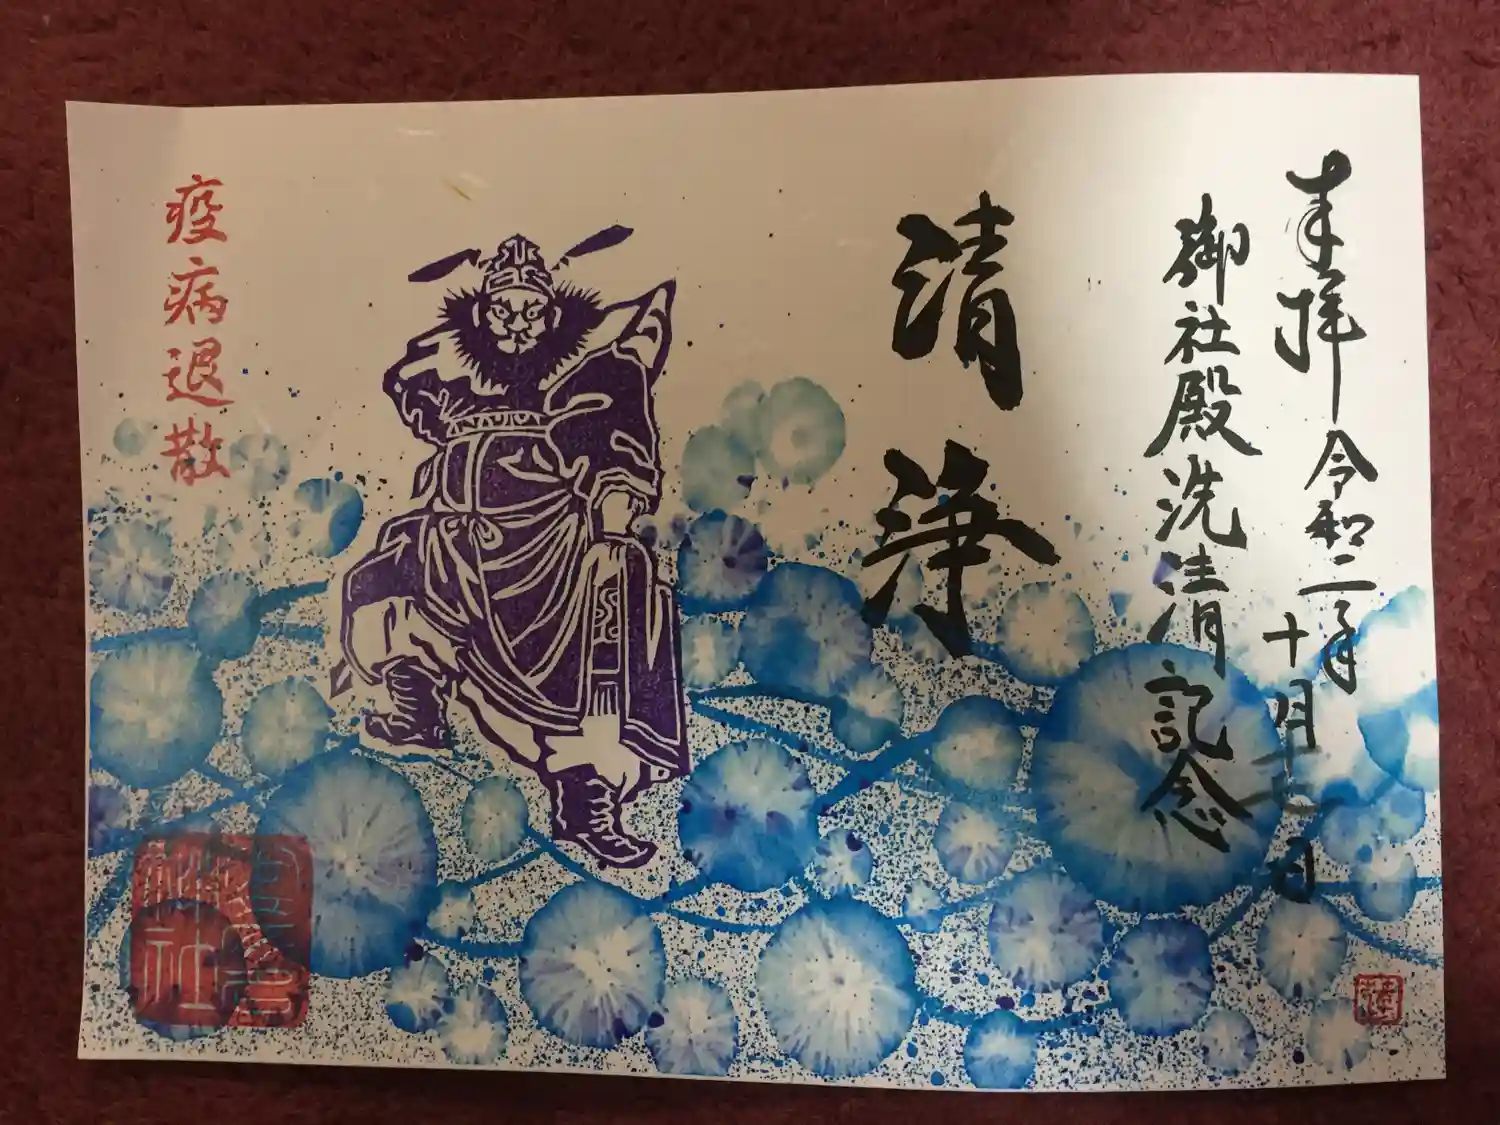 奉拝 令和二年
十月十七日
御社殿洗清記念
清浄
疫病退散